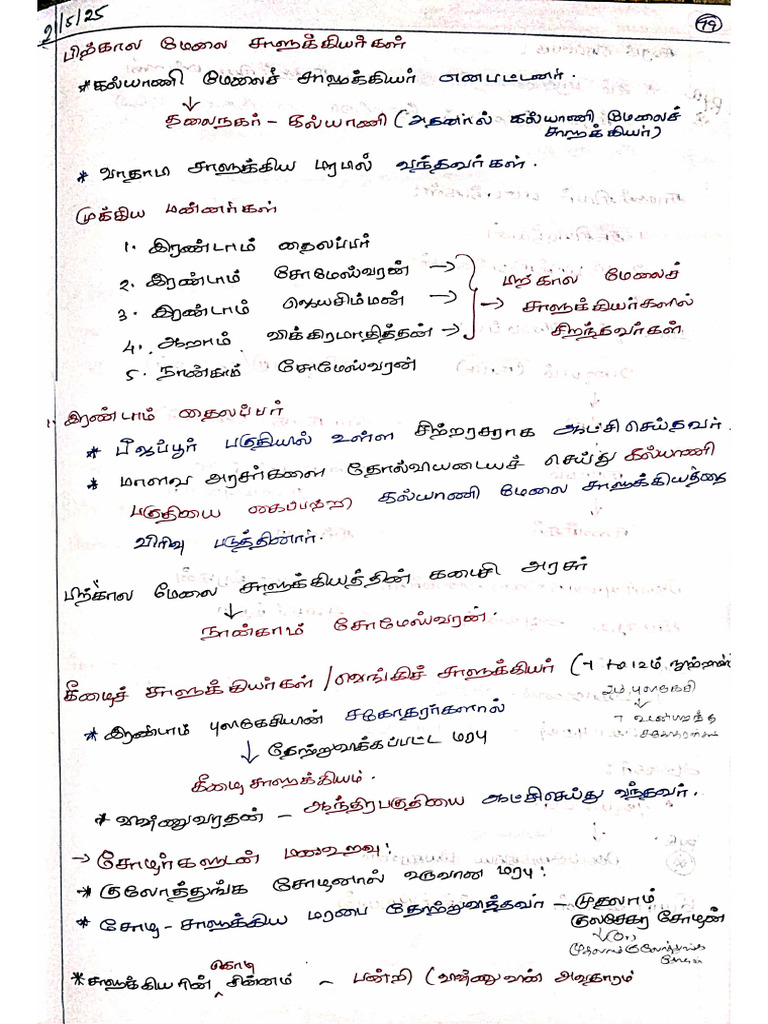 2/5/25
99
பிற்கால மேலை சாளுக்கியர்கள்
* கல்யாணி மேலைச் சாளுக்கியர் எனபட்டனர்.
↓
தலைநகர் - கல்யாணி (அதனால் கல்யாணி மேலைச்
சாளுக்கியர்)
* வாதாம சாளுக்கிய மரமல் வந்தவர்கள்.
முக்கிய மன்னர்கள்
1. இரண்டாம் தைலப்பர்
2. இரண்டாம் சோமேஸ்வரன் →
3. இரண்டாம் ஜெயசிம்மன் →
4. ஆறாம் விக்கிரமாதித்தன் →
பிற்கால மேலைச்
→ சாளுக்கியர்களில்
சிறந்தவர்கள்
5. நான்காம் சோமேஸ்வரன்
1. இரண்டாம் தைலப்பர்
* பீஜப்பூர் பகுதியில் உள்ள சிற்றரசராக ஆட்சிசெய்தவர்.
* மாளவ அரசர்களை தோல்வியடையச் செய்து கல்யாணி
பகுதியை கைப்பற்றி கல்யாணி மேலை சாளுக்கியத்தை
விரிவு படுத்தினார்.
பிற்கால மேலை சாளுக்கியத்தின் கடைசி அரசர்
↓
நான்காம் சோமேஸ்வரன்.
கீழைச் சாளுக்கியர்கள் / வெங்கிச் சாளுக்கியர் (7 to 12ம் நூற்றாண்
* இரண்டாம் புலகேசியின் சகோதரர்களால்
2ம் புலகேசி
↓ தோற்றுவிக்கப்பட்ட மரபு
கீழை சாளுக்கியம்.
* விஷ்ணுவரதன் - ஆந்திரபகுதியை ஆட்சிசெய்து வந்தவர்.
→ சோழர்களுடன் மணஉறவு:
* குலோத்துங்க சோழனால் உருவான மரபு:
* சோழ - சாளுக்கிய மரபை தோற்றுவித்தவர் - முதலாம்
குலசேகர சோழன்
↓ (or)
முதலாம் குலோத்துங்க
சோழன்
* சாளுக்கியரின் கொடி சின்னம் - பன்றி (விஷ்ணுவின் அவதாரம்